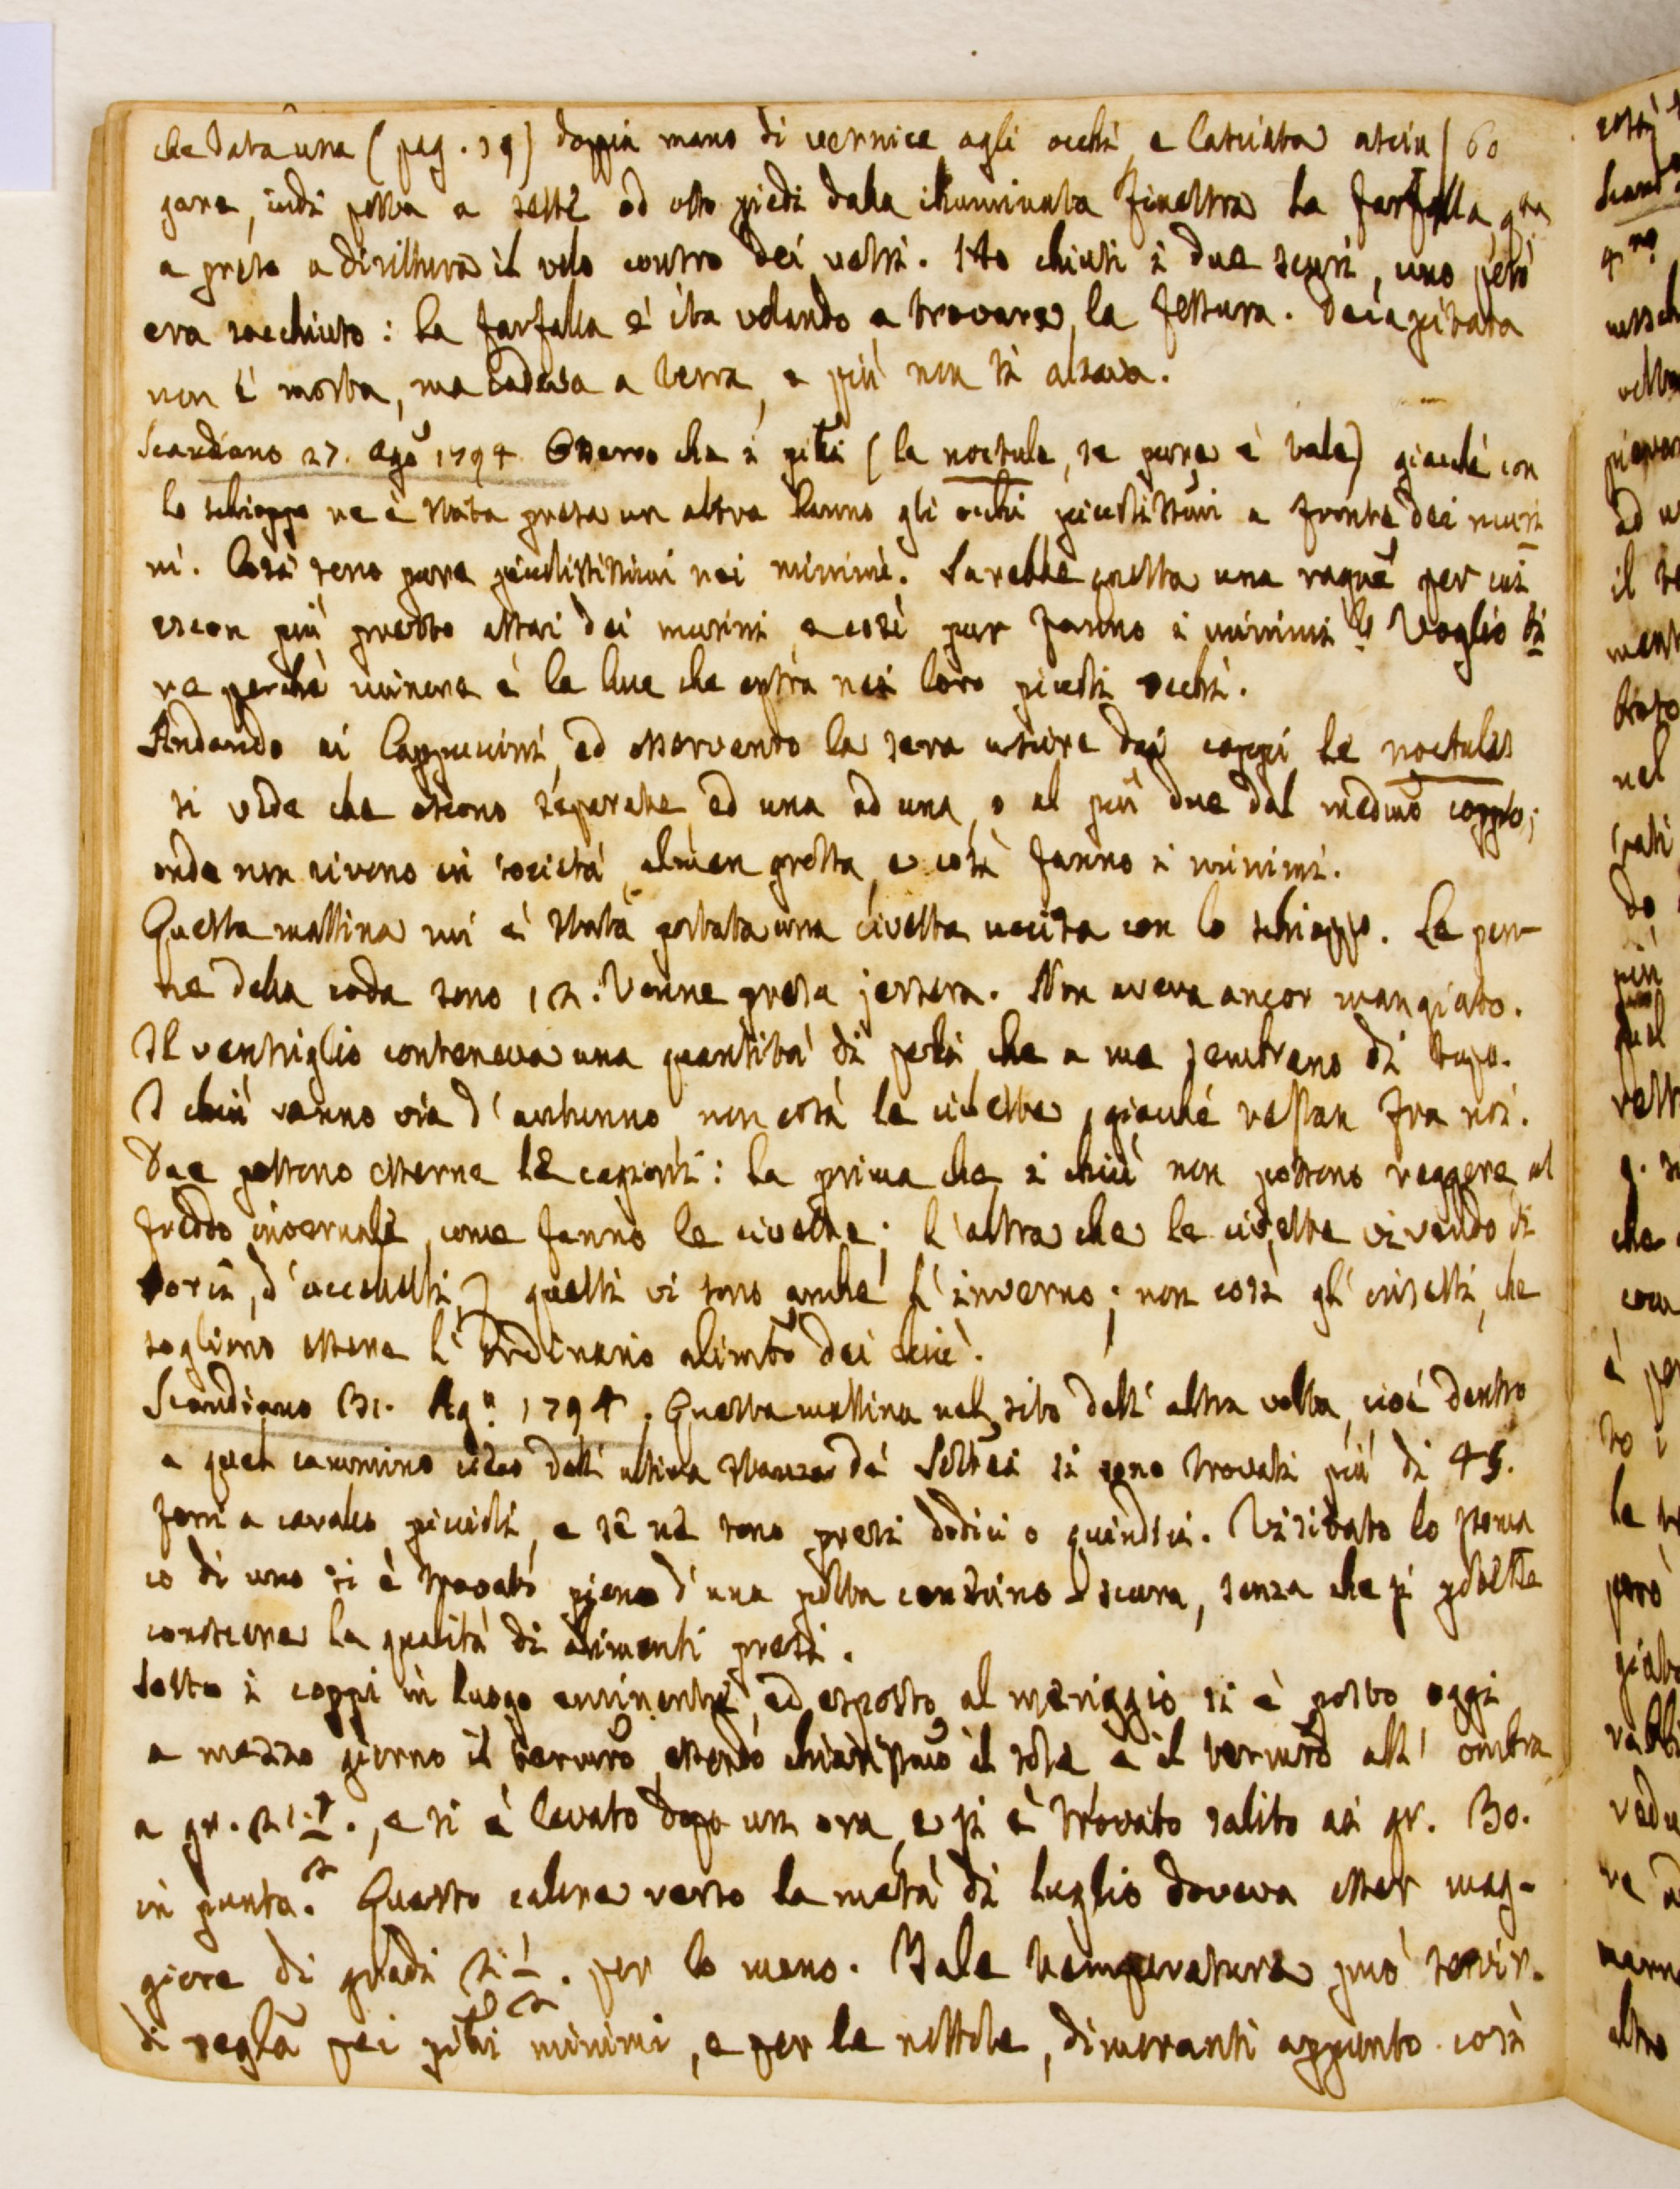 che data una (pag. 19) doppia mano di vernice agli occhi, e lasciata asciu / 60
gare, indi posta a sette od otto piedi dalla illuminata finestra la farfalla, qta
a preso a dirittura il volo contro dei vetri. Ho chiusi i due scuri, uno però
era socchiuso: la farfalla è ita volando a trovare la fessura. Decapitata
non è morta, ma cadeva a terra, e più non si alzava.
Scandiano 27. Ago 1794. Osservo che i pitli (la noctula, se pure è tale) giacché con
lo schioppo ne è stata presa un altra hanno gli occhi picciolissimi a fronte dei muri
ni. Così sono pure picciolissimi nei minimi. Sarebbe questa una ragne per cui
escon più presto assai dei murini, e così pur fanno i minimi? Voglio di
re perché minore è la luce che entra nei loro piccoli occhi.
Andando ai Cappuccini, ed osservando la sera uscire dai coppi le noctules
si vede che escono separate, ad una ad una, o al più due dal medmo coppo;
onde non vivono in società, almen stretta, e così fanno i minimi.
Questa mattina mi è stata portata una civetta uccisa con lo schioppo. Le pen-
ne della coda sono 12. Venne presa jersera. Non aveva ancor mangiato.
Il ventriglio conteneva una quantità di peli, che a me sembrano di topo.
I chiù vanno via d'autunno non così le civette, giacché restan fra noi.
Due possono esserne le cagioni: la prima che i chiù non possono reggere al
freddo invernale, come fanno le civette; l'altra che le civette vivendo di
sorci, d'uccelletti, questi vi sono anche l'inverno; non così gl'insetti, che
sogliono essere l'ordinario alimto dei chiù.
Scandiano 31. Ago 1794. Questa mattina nel sito dell'altra volta, cioè dentro
a quel cammino cieco dell'ultima stanza de' si sono trovati più di 45.
ferri a cavallo piccioli, e se ne sono presi dodici o quindici. Visitato lo stoma
co di uno si è trovato pieno d'una polta cenerino oscura, senza che si potesse
conoscere la qualità di alimenti presi.
Sotto i coppi in luogo eminente, ed esposto al meriggio si è posto oggi
a mezzo giorno il termro, essendo chiarissimo il sole e il termro all'ombra
a gr. 21 1/2., e si è levato dopo un ora, e si è trovato salito ai gr. 30.
in punta. Questo calore verso la metà di luglio doveva esser mag-
giore di gradi 2 1/2. per lo meno. Tale temperatura può servir.
di regla pei pitli minimi, e per le nottole, dimoranti appunto così